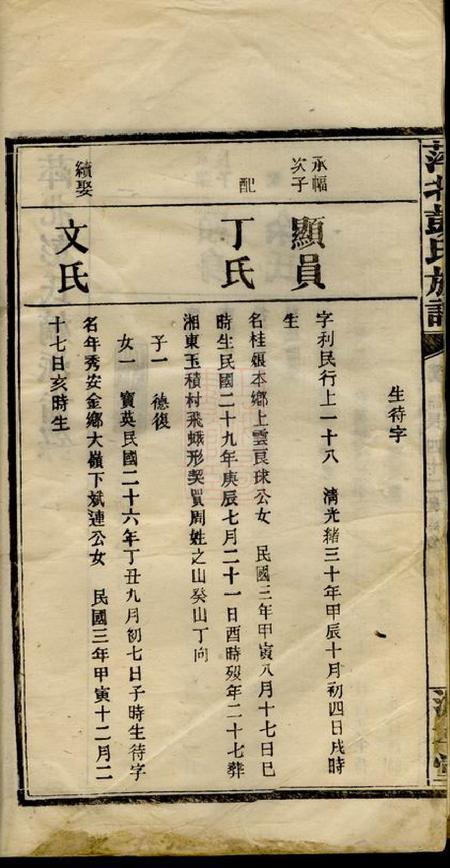 萍北彭氏族譜
生待字
承幅次子
顯員
字利民行上一十八 清光緒三十年甲辰十月初四日戌時
生
配
丁氏
名桂銀本鄉上雲良球公女 民國三年甲寅八月十七日巳
時生民國二十九年庚辰七月二十一日酉時歿年二十七葬
湘東玉積村飛蛾形契買周姓之山癸山丁向
子一 德復
女一 寶英民國二十六年丁丑九月初七日子時生待字
續娶
文氏
名年秀安金鄉大嶺下斌連公女 民國三年甲寅十二月二
十七日亥時生